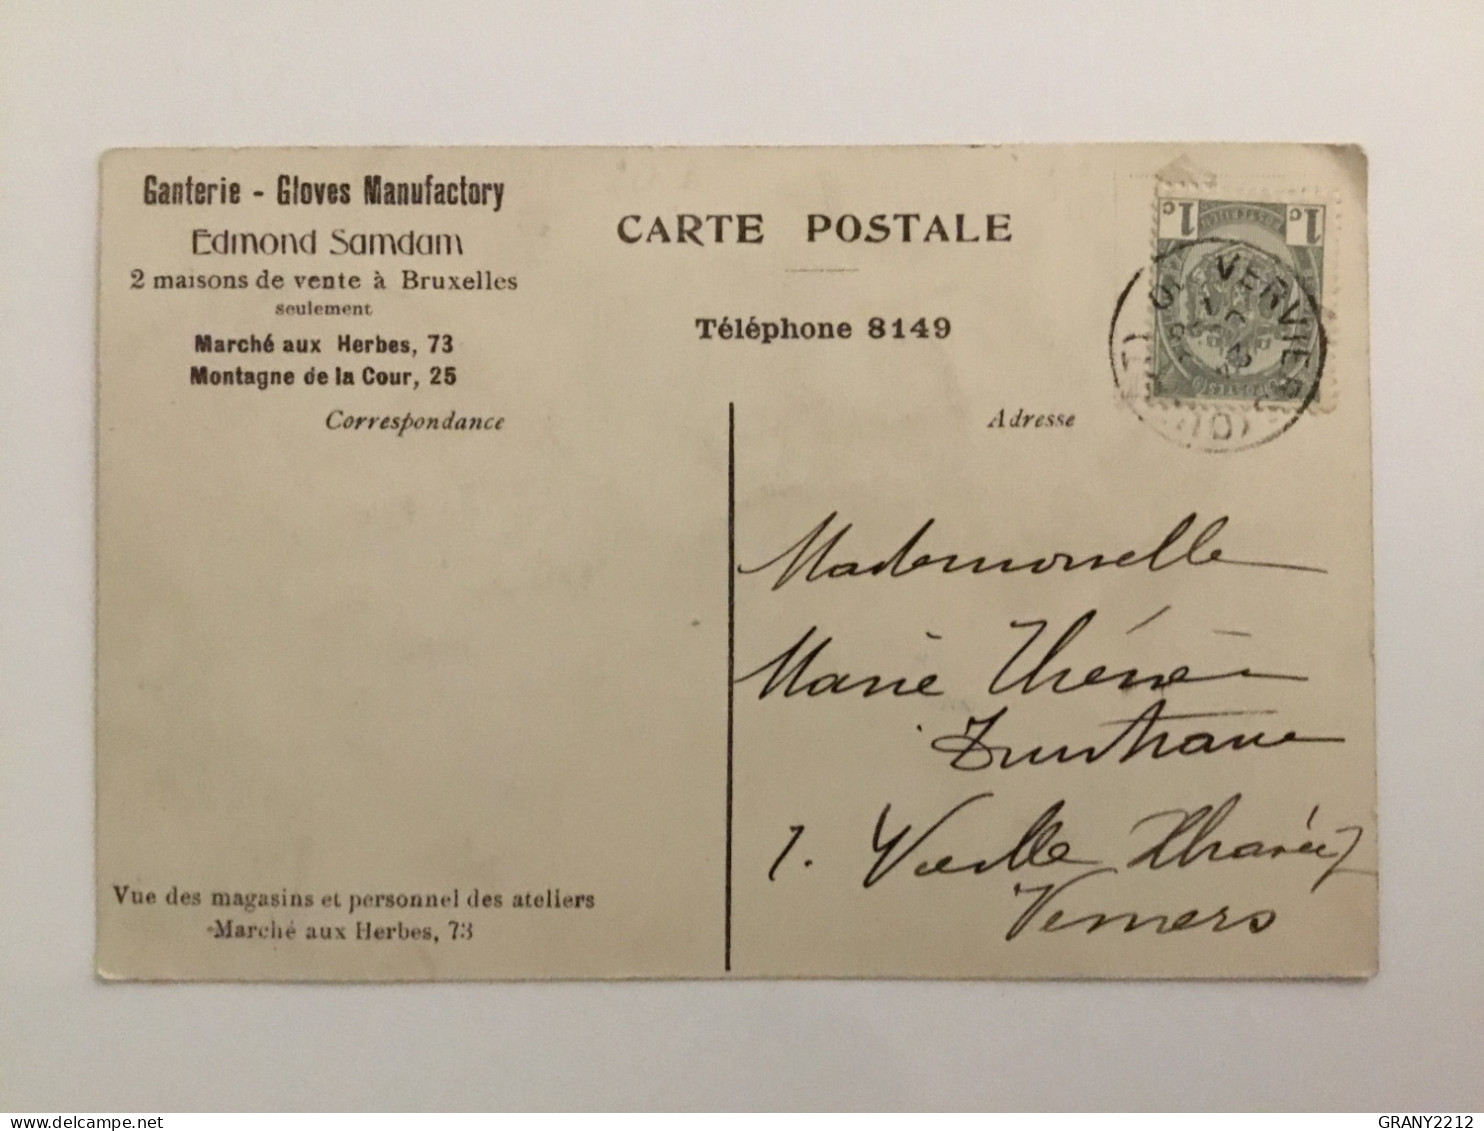 Ganterie - Gloves Manufactory
Edmond Samdam
2 maisons de vente à Bruxelles
seulement
Marché aux Herbes, 73
Montagne de la Cour, 25
Correspondance
CARTE POSTALE
Téléphone 8149
Adresse
1c 1c
VERVIERS
Mademoiselle
Marie Thérèse
1. Vieille
Verviers
Vue des magasins et personnel des ateliers
Marché aux Herbes, 73
GRANY2212